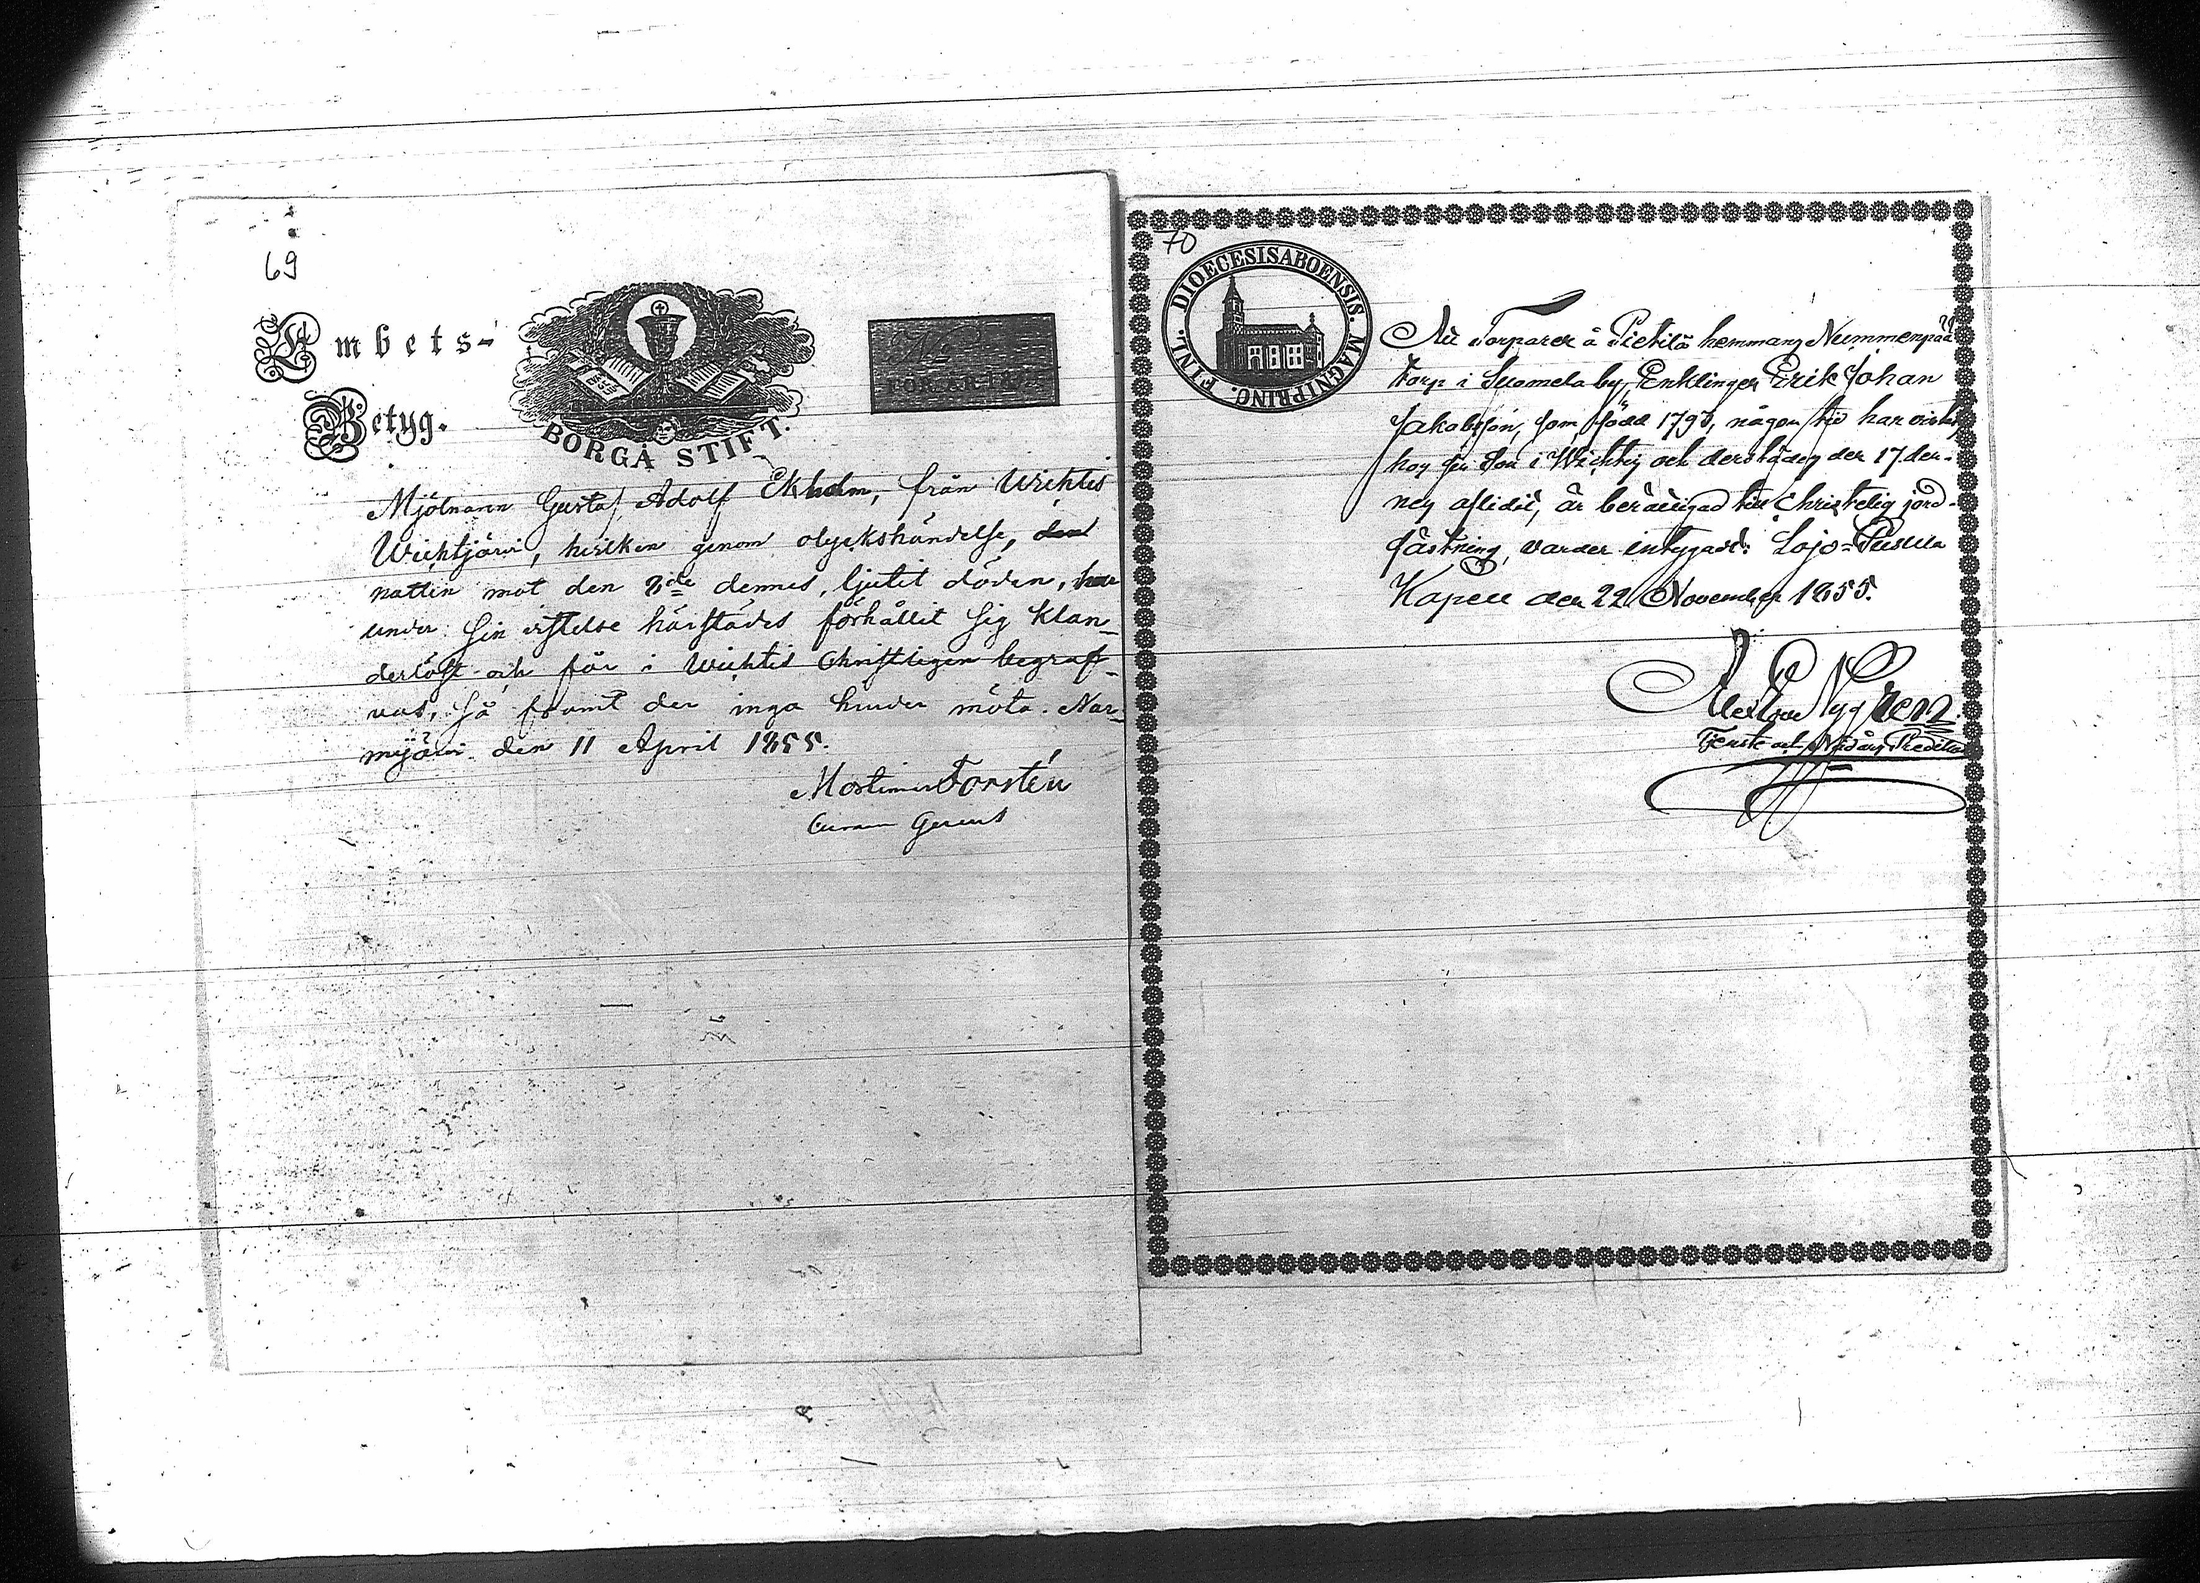 69
Embets-
Betyg.
BORGÅ STIFT.
FÖR ÅR 18
Mjölnaren Gustaf Adolf Ekholm, från Wichtis
Wichtjärvi, hvilken genom olyckshändelse,
natten mot den 8de dennes, ljutit döden, har
under sin vistelse härstädes förhållit sig klan-
derlöst och får i Wichtis Christligen begraf-
vas, så framt der inga hinder möta. Nur-
mijärvi den 11 April 1855.
Mortimer Forstén
Curam Gerens
70
DIOECESIS ABOENSIS. MAGNI PRINC. FINL.
Att Torparen å Pietilä hemmans Nummenpää
Torp i Suomela by, Enklingen Erik Johan
Jakobsson, som, född 1793, någon tid har vistats
hos sin Son i Wichtis och derstädes den 17 den-
nes aflidit, är berättigad till Christelig jord-
fästning, varder intygadt. Lojo-Pusula
Kapell den 22 November 1855.
Nygren
Tjenst. och Nådårs Predikant